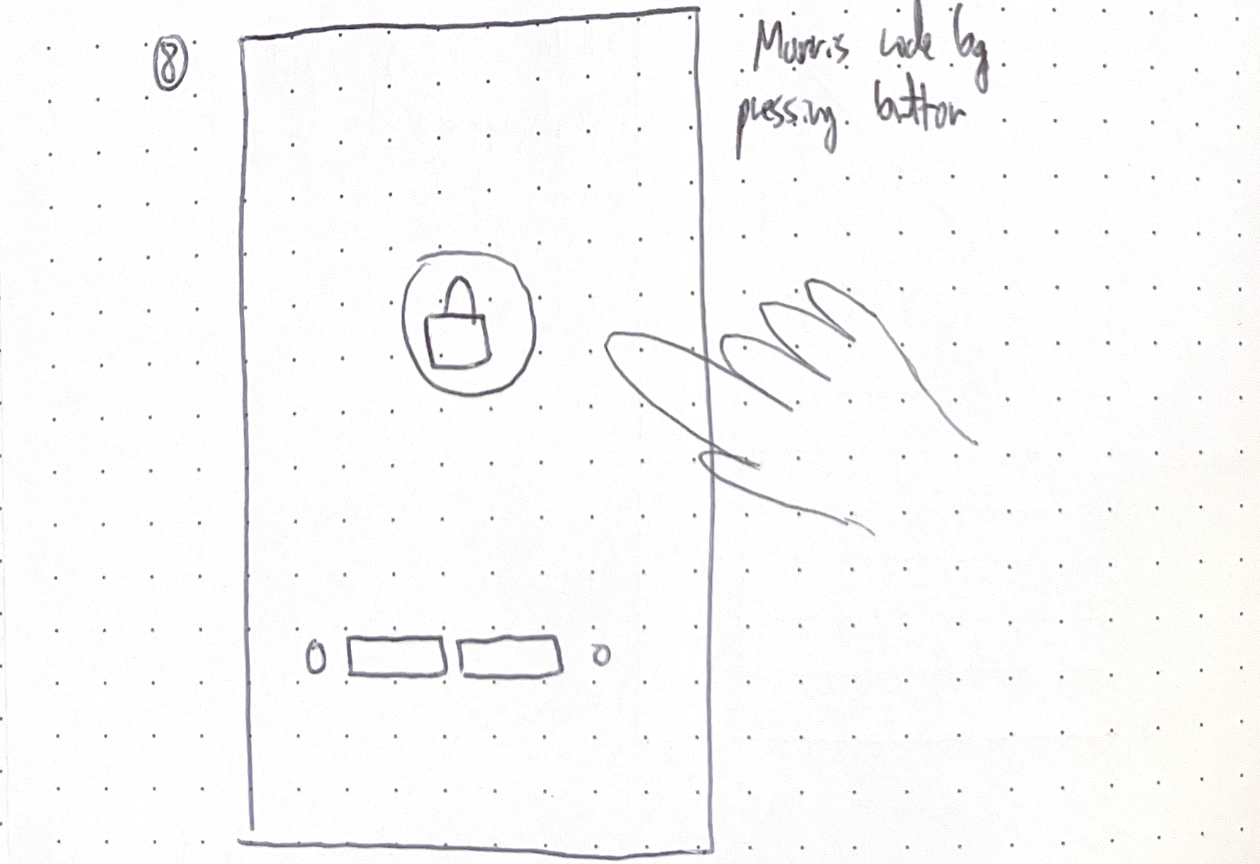 ⑧
Morris code by
pressing button